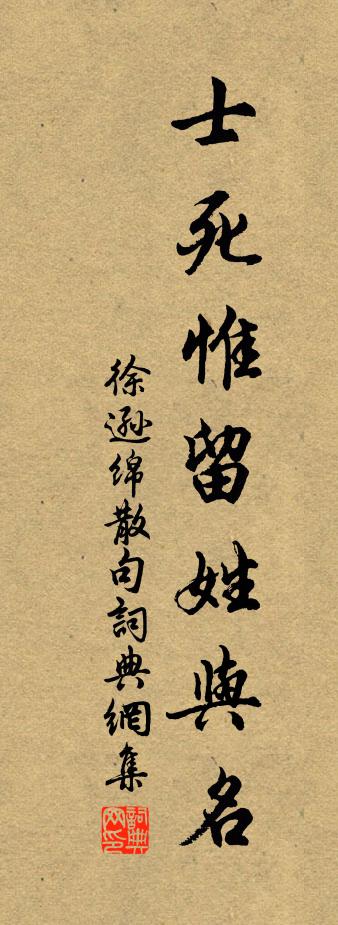 士死惟留姓與名
徐遜綿散句詞典網集
詞典網印